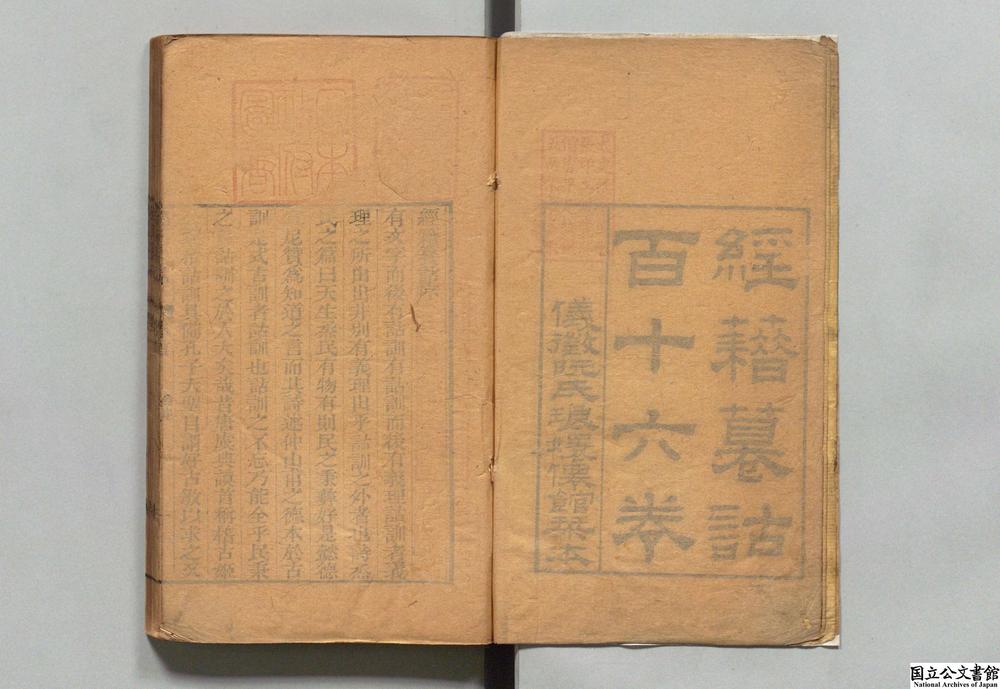 經藉籑詁
百十六卷
儀徵阮氏瑯嬛僊館栞本
經籍籑詁序
有文字而後有詁訓有詁訓而後有義理詁訓者義
理之所由出非別有義理出乎詁訓之外者也詩烝
民之篇曰天生烝民有物有則民之秉彝好是懿德
尼贊為知道之言而其詩述仲山甫之德本於古
訓是式古訓者詁訓也詁訓之不忘乃能全乎民秉
之 詁訓之於人大矣哉昔唐虞典謨首稱稽古姬
詁訓具備孔子大聖自謂好古敏以求之又
日本
政府
圖書
国立公文書館
National Archives of Japan